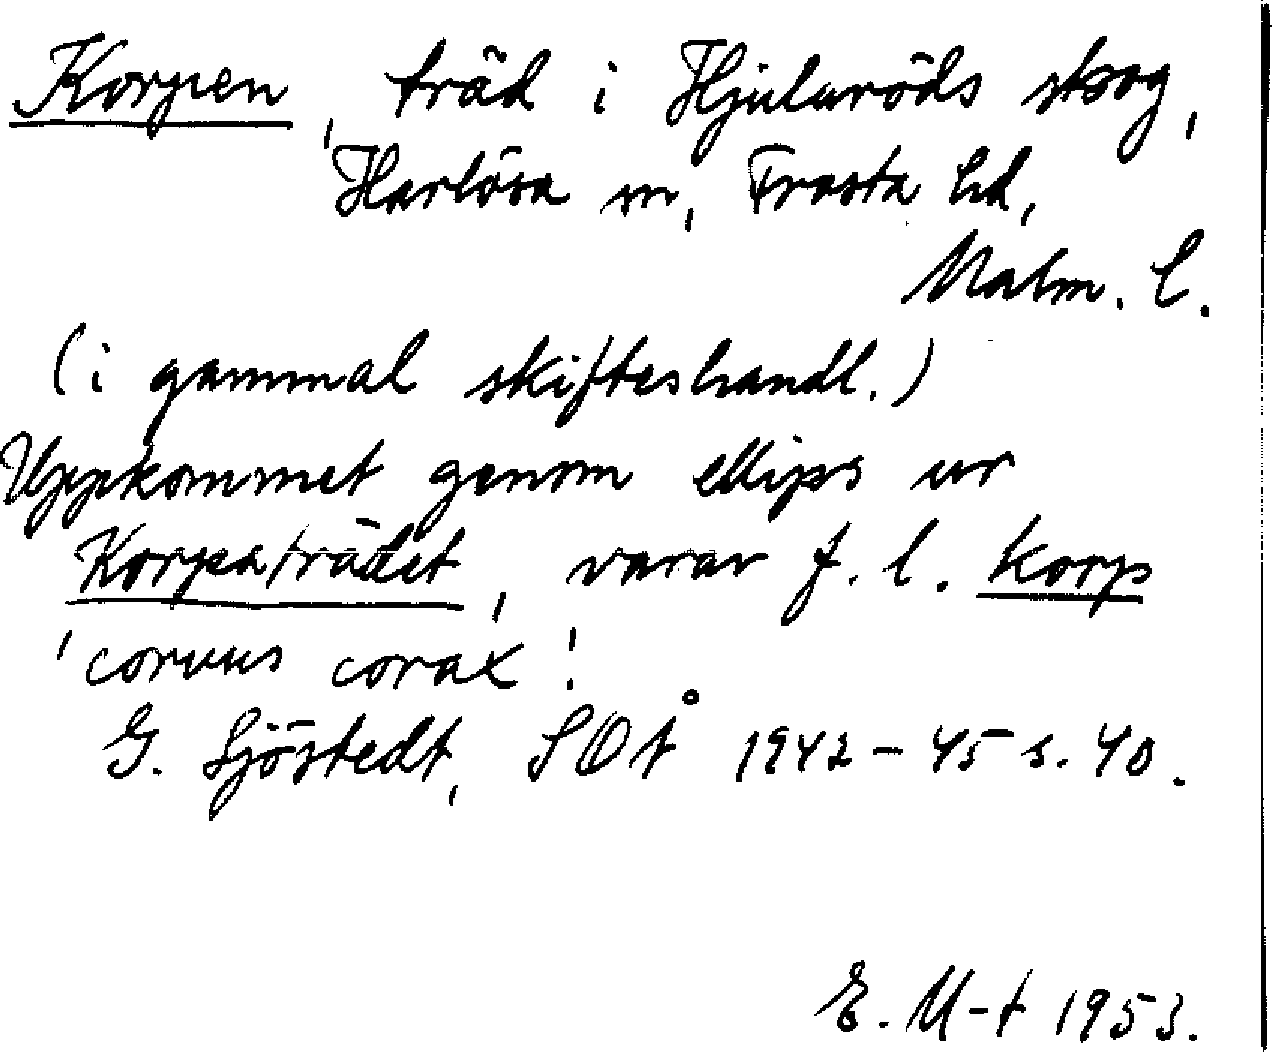 Korpen, träd i Hjularöds skog,
Harlösa sn, Frosta hd,
Malm. l.
(i gammal skifteshandl.)
Uppkommet genom ellips ur
Korpaträdet, varav f. l. korp
'corvus corax'.
G. Sjöstedt, SOÅ 1942-45 s. 40.
E. M-t 1953.